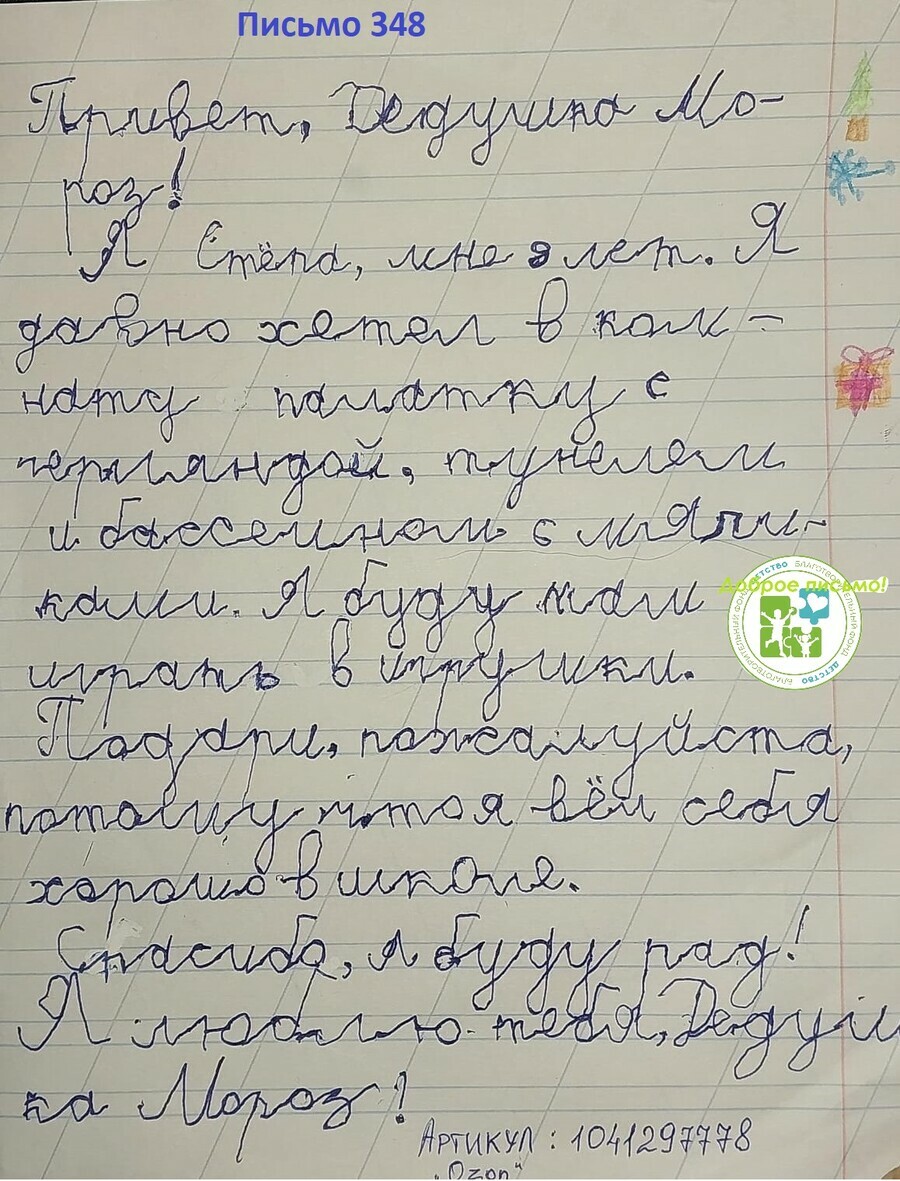 Письмо 348
Привет, Дедушка Мо-
роз!
Я Стёпа, мне 9 лет. Я
давно хетел в ком-
нату палатку с
герляндой, тунелем
и бассеином с мячи-
ками. Я буду там
играть в игрушки.
Подари, пожалуйста,
потому что я вём себя
хорошо в школе.
Спасибо, я буду рад!
Я люблю тебя, Дедуш
ка Мороз!
Артикул: 1041297778
"Ozon"
Доброе письмо!
БЛАГОТВОРИТЕЛЬНЫЙ ФОНД ДЕТСТВО